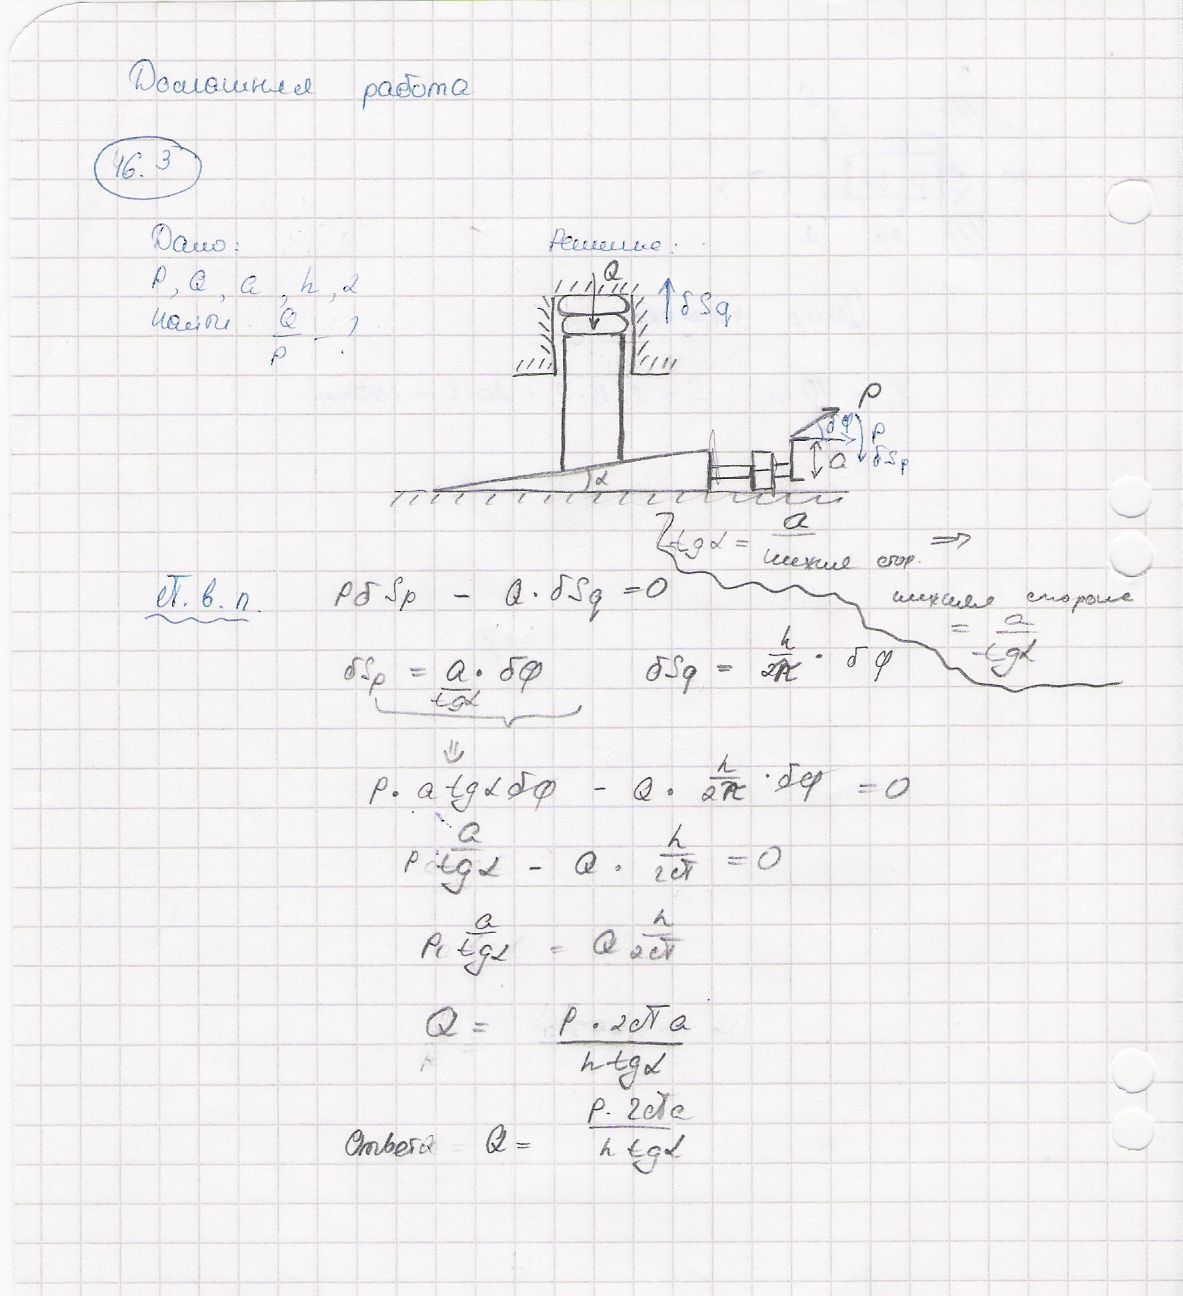 Домашняя работа
46.3
Дано: Решение:
P, Q, a, h, α
Найти Q/P - ?
Q
δSq
P
δφ P
a δSp
α
tgα = a/нижняя стор. ⇒
нижняя сторона
= a/tgα
П.в.п. PδSp - Q·δSq = 0
δSp = a/tgα · δφ δSq = h/2π · δφ
⇓
P· a tgα δφ - Q · h/2π · δφ = 0
P a/tgα - Q · h/2π = 0
P· a/tgα = Q h/2π
Q = P·2πa/h tgα
Ответ: Q = P·2πa/h tgα